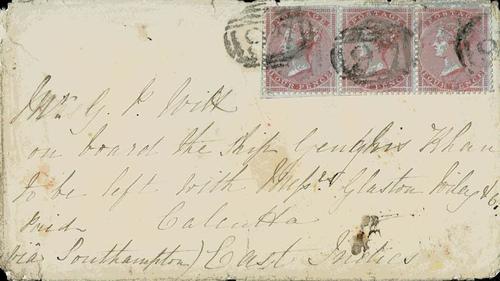 POSTAGE POSTAGE POSTAGE
FOUR PENCE FOUR PENCE FOUR PENCE
Mr G. P. Witt
on board the ship Genghis Khan
to be left with Messrs Glaston & Co.
Paid Calcutta
(via Southampton) East Indies